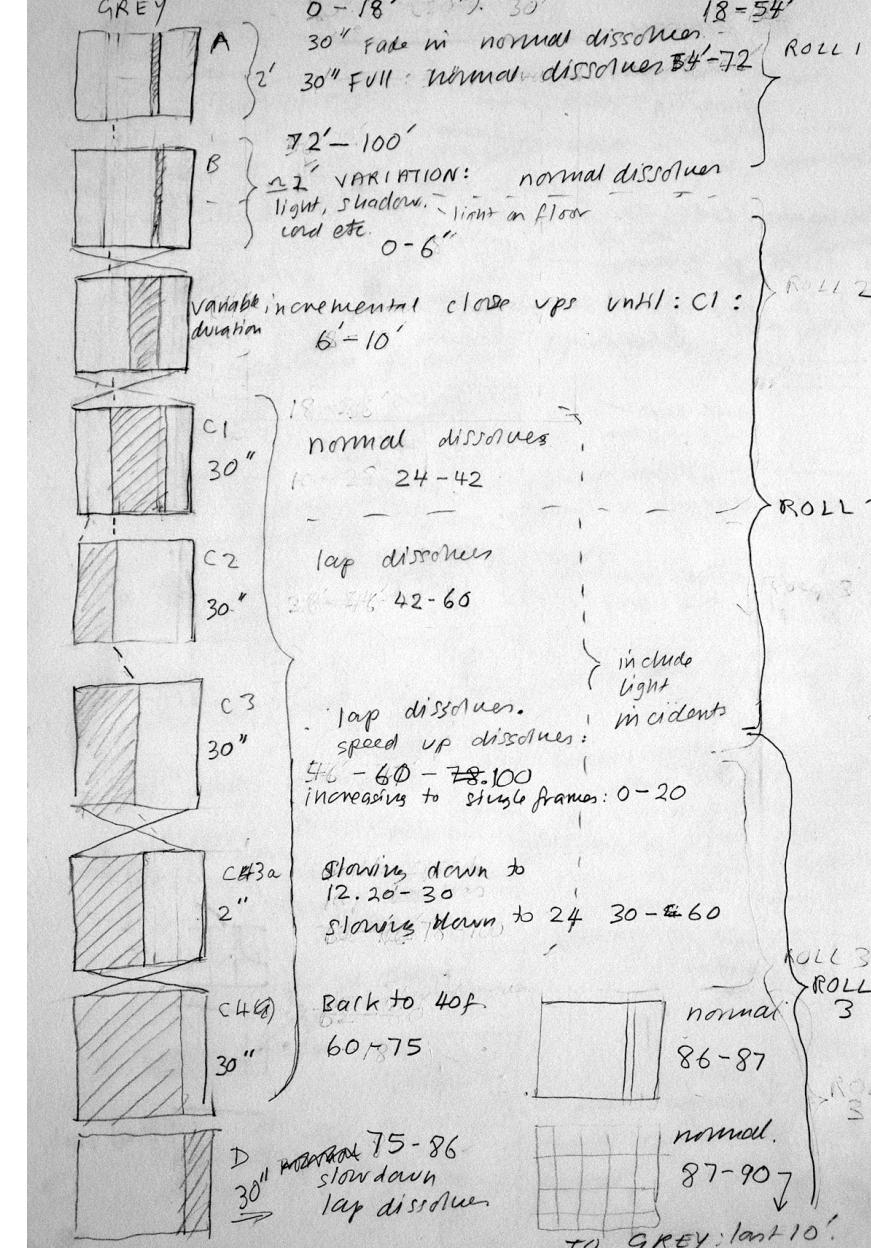 GREY
0 - 18' 30' 18 = 54'
A 30" Fade in normal dissolves
2' 30" FULL: normal dissolves 54'-72 ROLL 1
72' - 100'
B ~2' VARIATION: normal dissolves
light, shadow. light on floor
cord etc.
0-6"
ROLL 2
variable incremental close ups until: C1:
duration 6'-10'
C1
normal dissolves
30" 24-42
ROLL
C2 lap dissolves
30" 42-60
include
light
incidents
C3 lap dissolves.
30" speed up dissolves:
46 - 60 - 78.100
increasing to single frames: 0-20
C3a slowing down to
2" 12.20-30
slowing down to 24 30-60
ROLL 3
ROLL
3
C4 Back to 40f. normal
30" 60-75 86-87
D 75-86 normal.
30" slowdown 87-90
lap dissolves
TO GREY: last 10'.